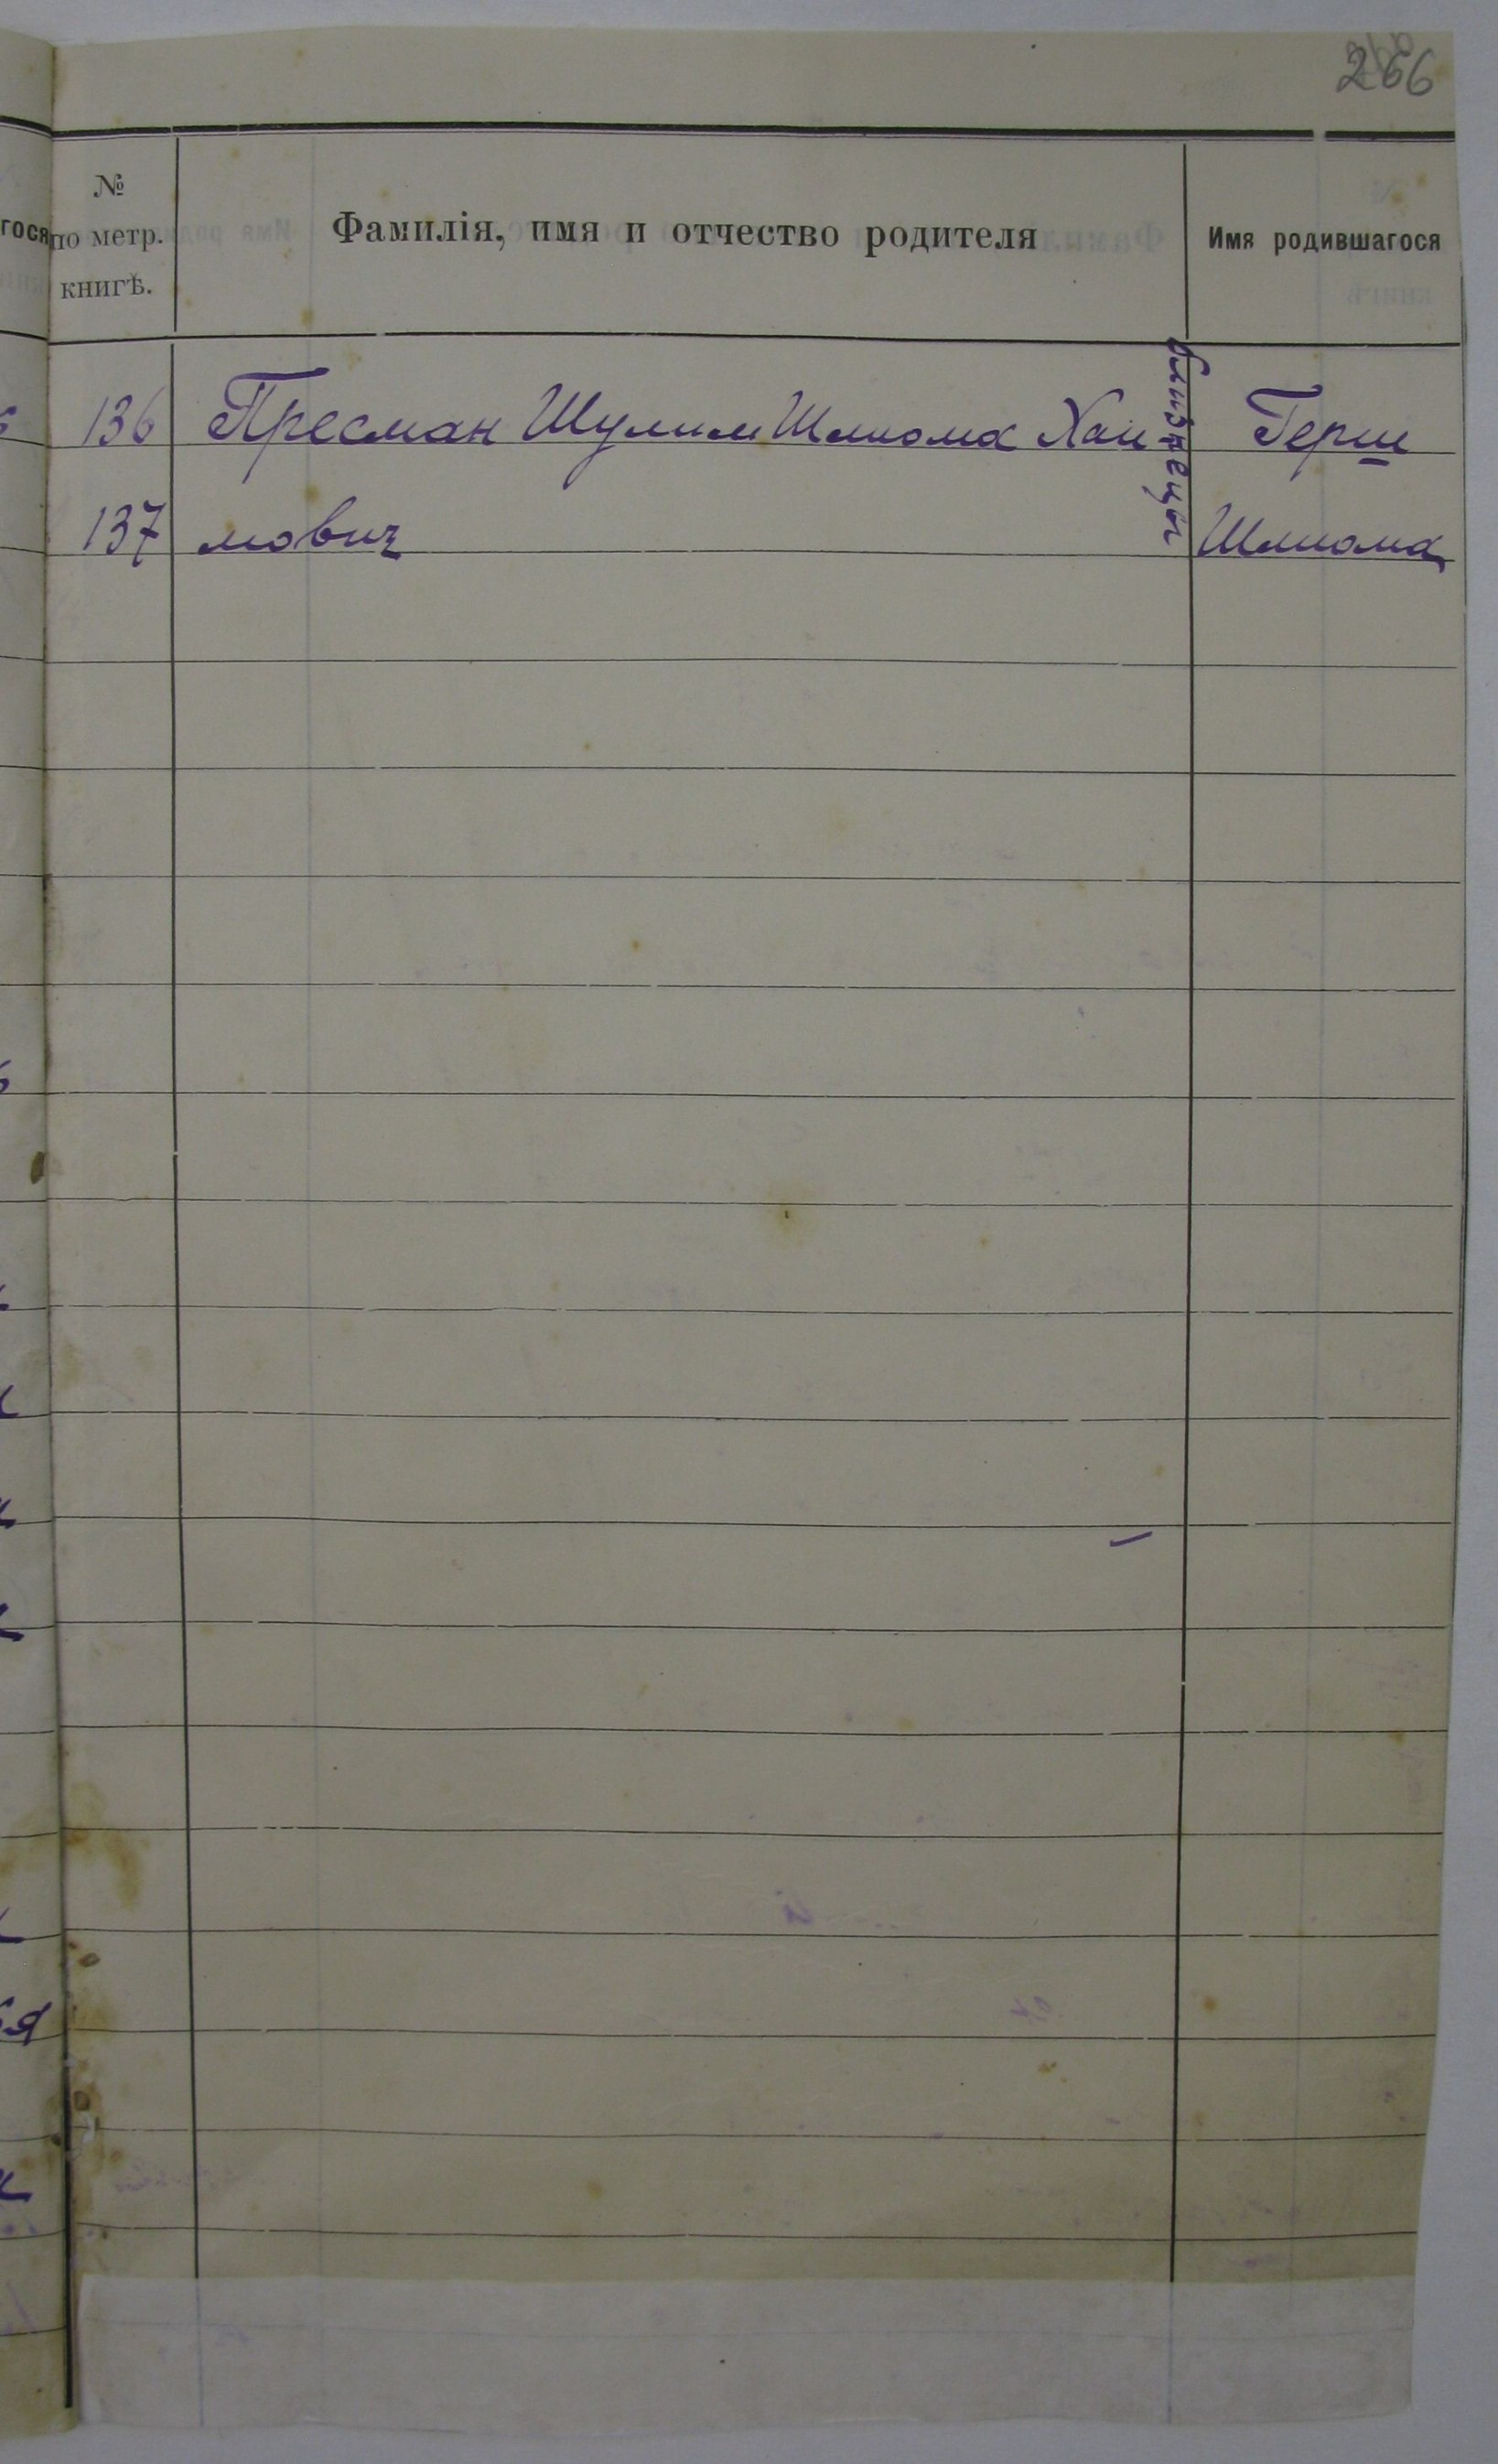 266
№ по метр. книгѣ.
Фамилія, имя и отчество родителя
Имя родившагося
136 Пресман Шулим Шлиома Хаи Герш
137 мович Шлиома
близнецы
гося